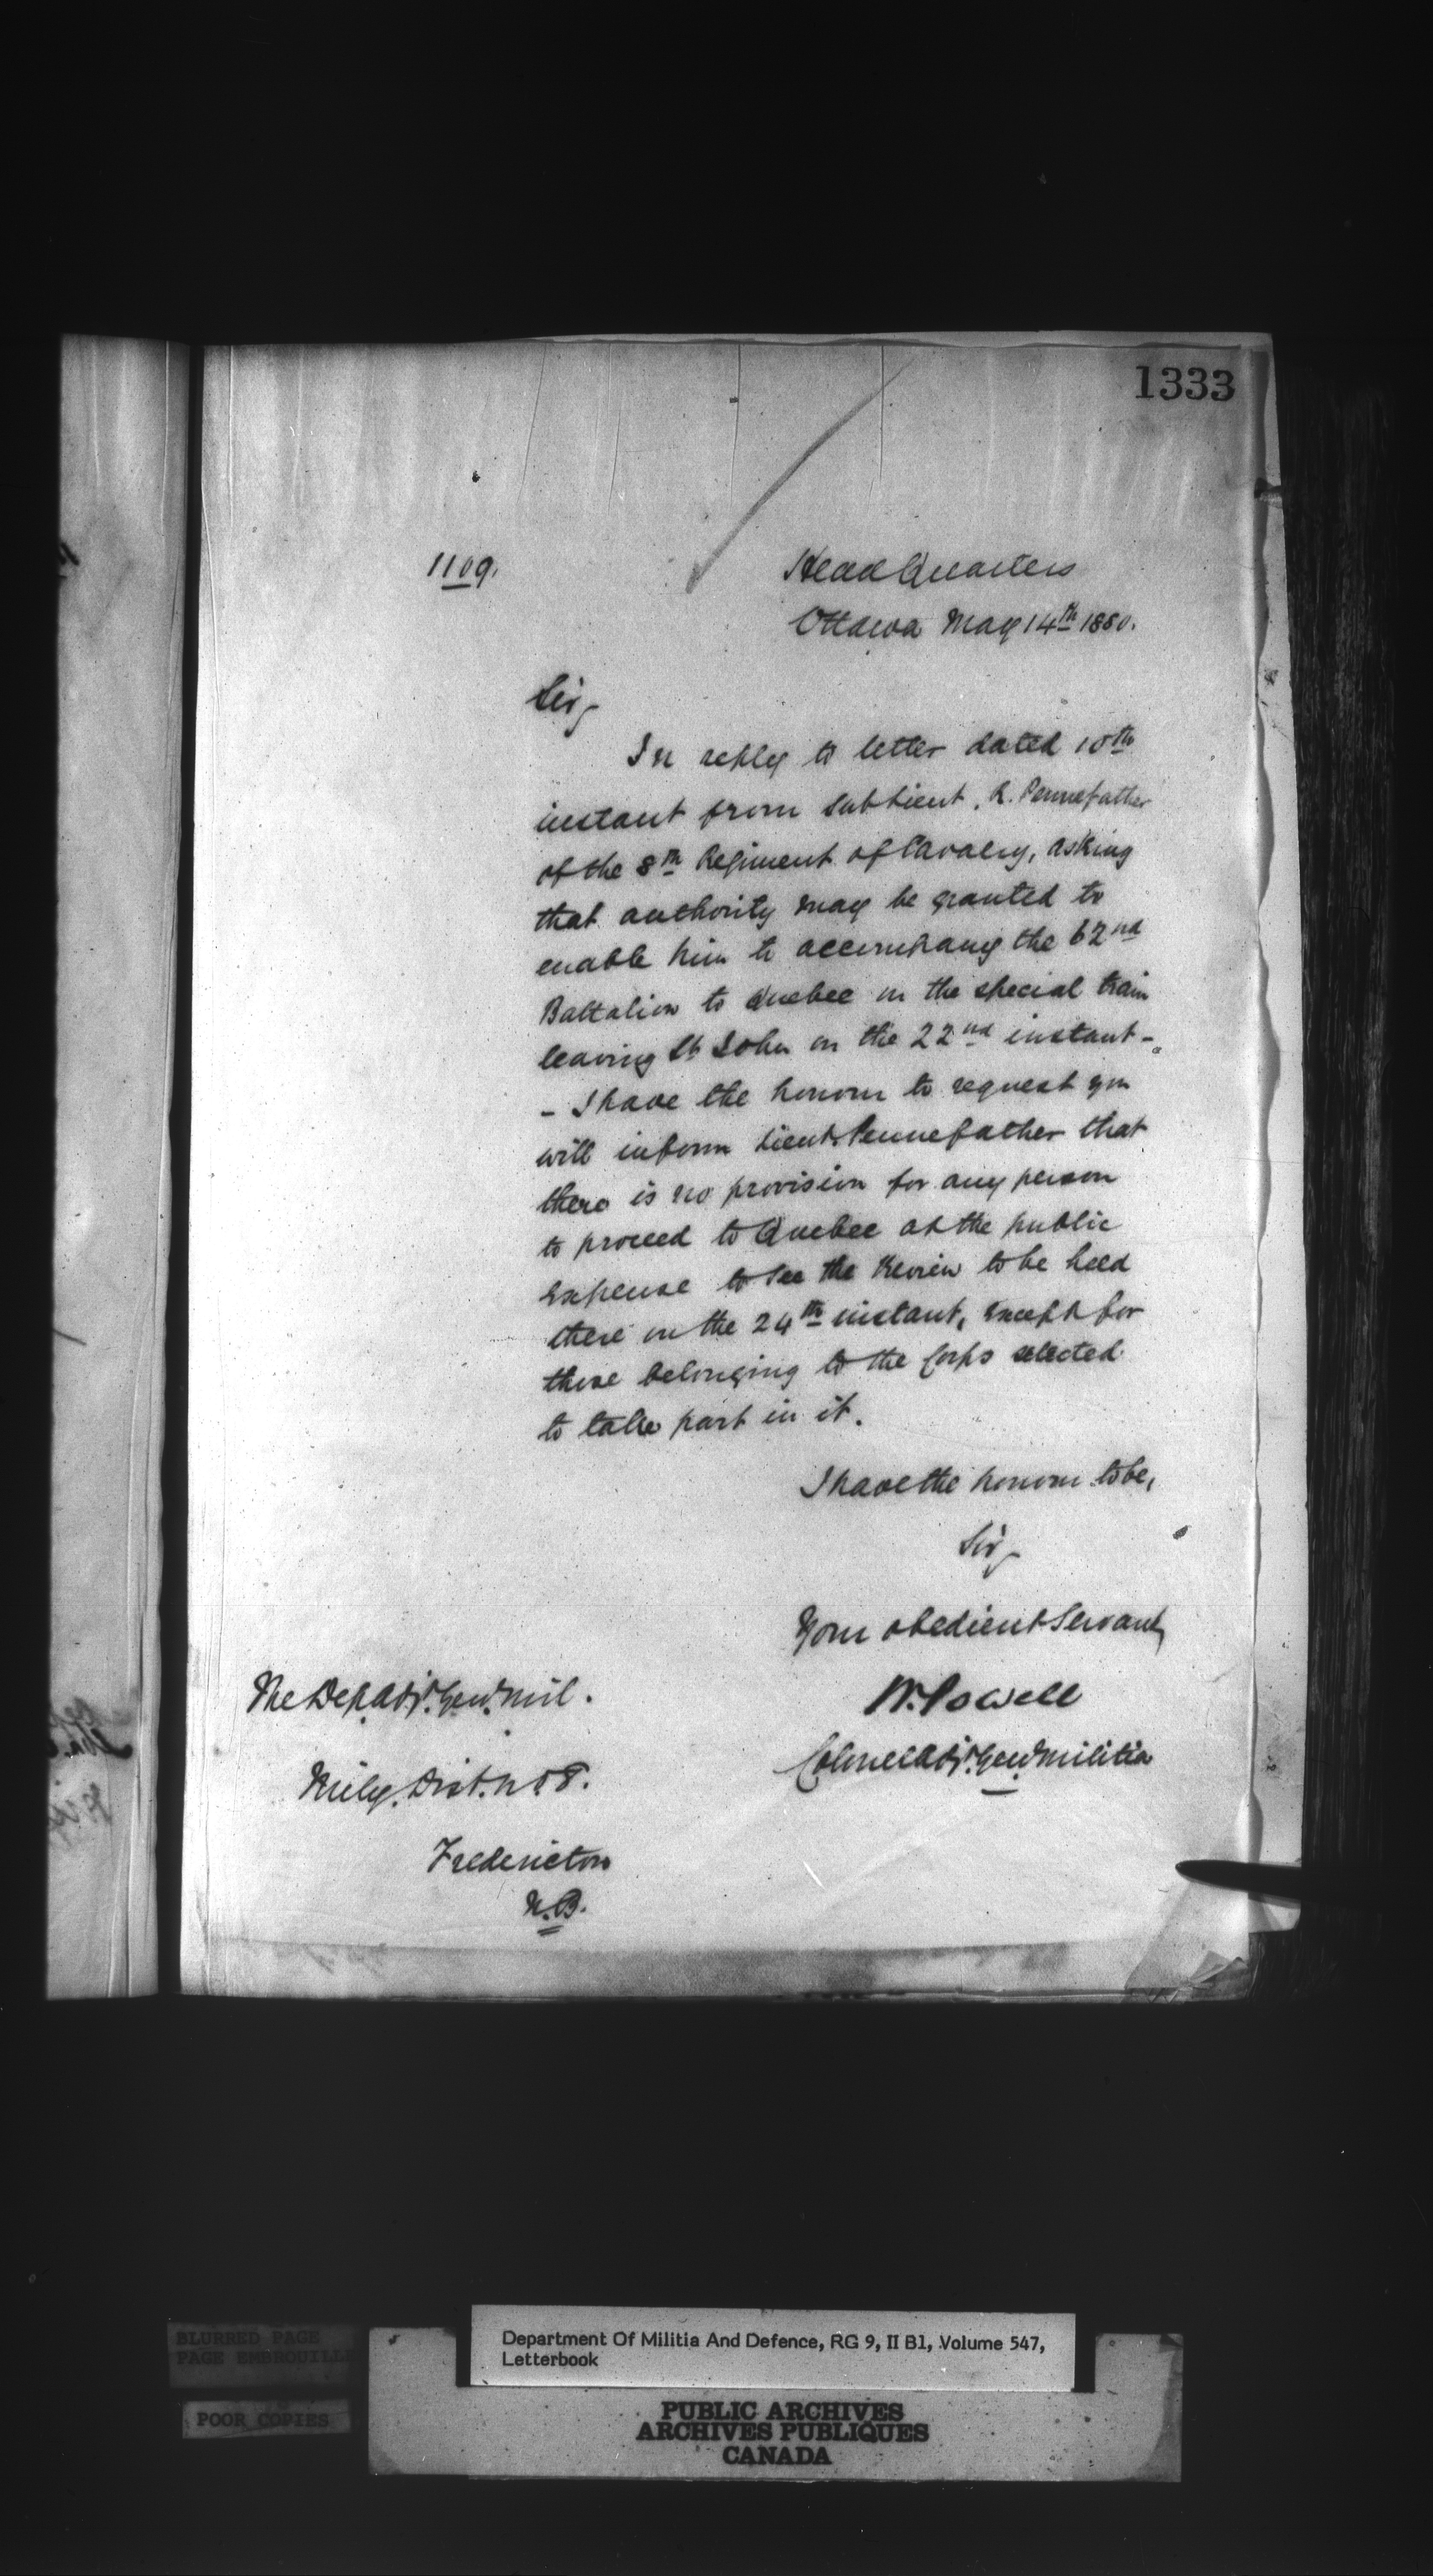 1333
1109.
Head Quarters
Ottawa May 14th 1880.
Sir,
In reply to letter dated 10th
instant from Sub Lieut. R. Pennefather
of the 8th Regiment of Cavalry, asking
that authority may be granted to
enable him to accompany the 62nd
Battalion to Quebec in the special train
leaving St John on the 22nd instant -
- I have the honour to request you
will inform Lieut. Pennefather that
there is no provision for any person
to proceed to Quebec at the public
expense to see the Review to be held
there on the 24th instant, except for
those belonging to the Corps selected
to take part in it.
I have the honour to be,
Sir,
Your obedient Servant,
W. Powell
Colonel Adjt. Genl. Militia
The Dep. Adjt. Genl. Mil.
Mily. Dist. No 8.
Fredericton
N.B.
BLURRED PAGE
PAGE EMBROUILLE
POOR COPIES
Department Of Militia And Defence, RG 9, II B1, Volume 547,
Letterbook
PUBLIC ARCHIVES
ARCHIVES PUBLIQUES
CANADA